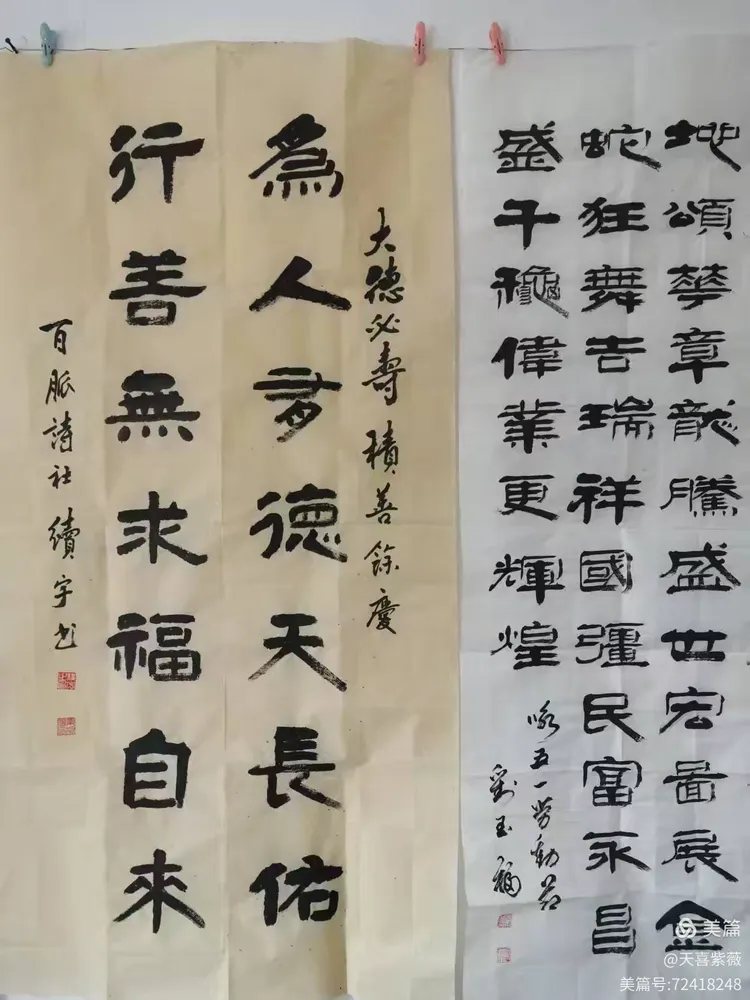 地頌華章龍騰盛世宏啚展金
蛇狂舞吉瑞祥國彊民富永昌
盛千穐偉業更輝煌
咏五一劳動节
劉玉
大德必壽 積善餘慶
為人多德天長佑
行善無求福自來
百脈詩社 續宇书
美篇
@天喜紫薇
美篇号:72418248